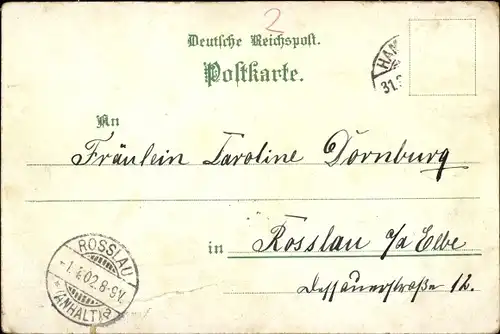 2
Deutsche Reichspost.
Postkarte.
HAM
31.
An
Fräulein Caroline Dornburg
in Rosslau a/d Elbe
Dessauerstraße 12.
ROSSLAU
02.8-9V.
(ANHALT)